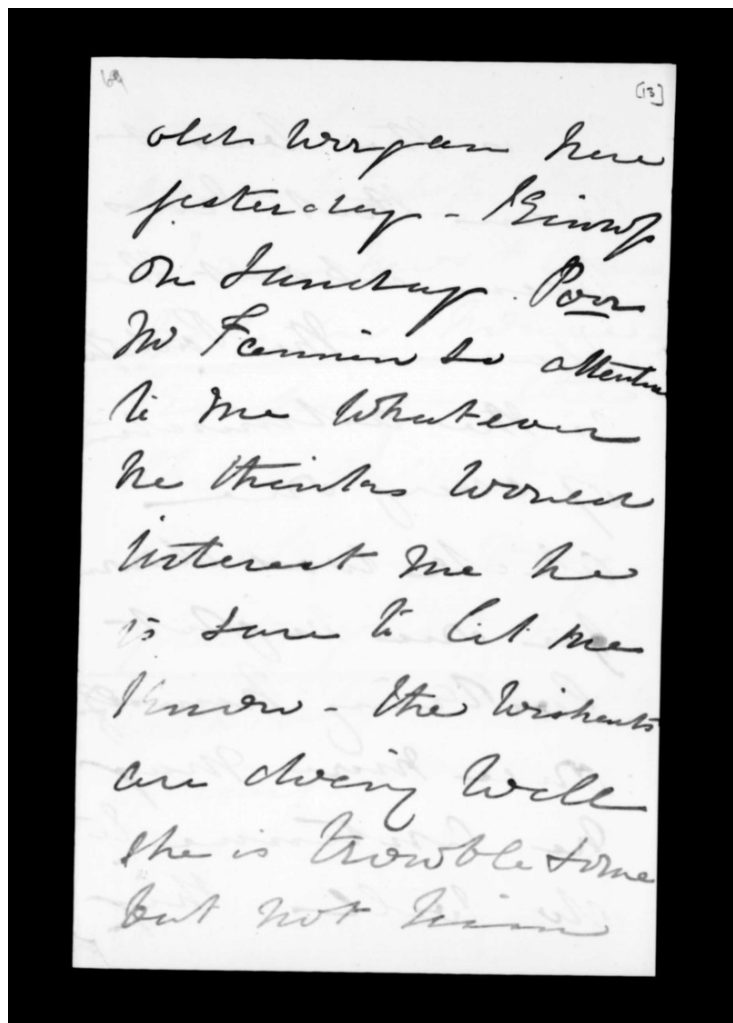 [13]
old Worgan here
yesterday -
on Sunday. Poor
Mr Fannin so attentive
to me Whatever
he thinks Would
interest me he
is sure to let me
Know - the Wisharts
are doing Well
She is trouble some
but not him